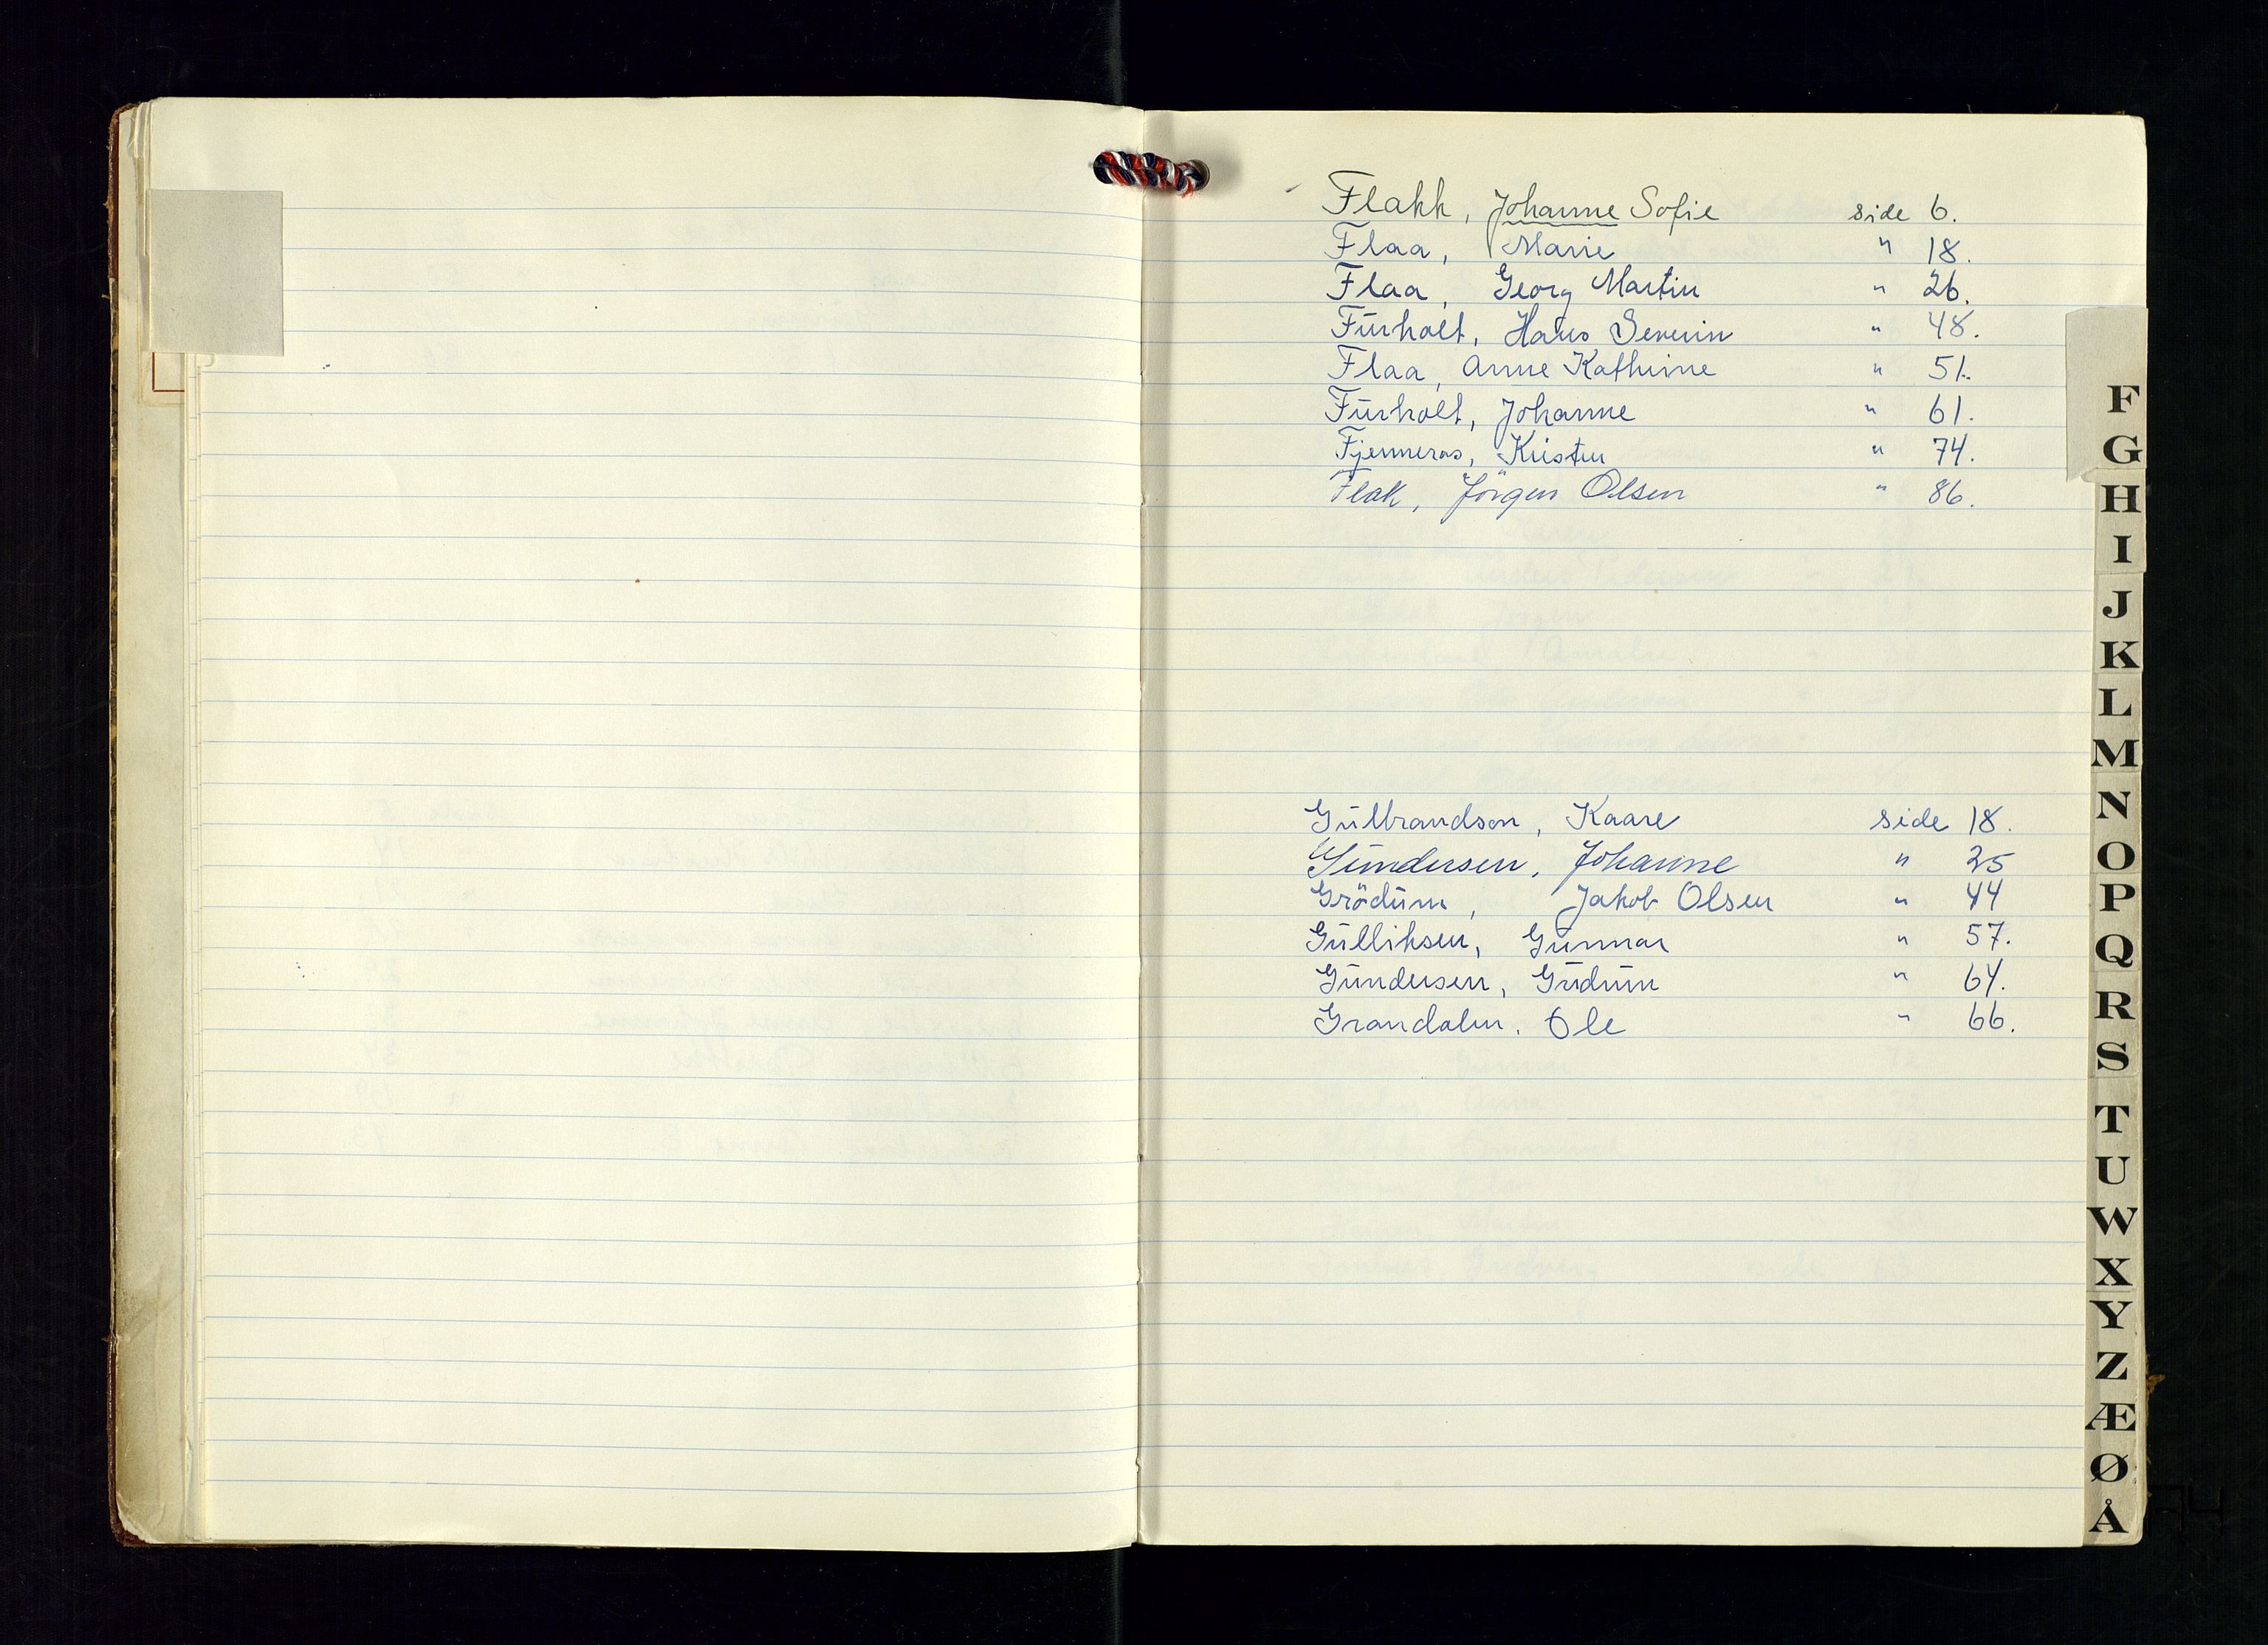 Flakk, Johanne Sofie side 6.
Flaa, Marie " 18.
Flaa, Georg Martin " 26.
Furholt, Hans Severin " 48.
Flaa, Anne Kathrine " 51.
Furholt, Johanne " 61.
Fjenneros, Kristen " 74.
Flak, Jörgen Olsen " 86.
Gulbrandson, Kaare side 18.
Gundersen, Johanne " 25
Grödum, Jakob Olsen " 44
Gulliksen, Gunnar " 57.
Gundersen, Gudrun " 64.
Grandalen, Ole " 66.
F
G
H
I
J
K
L
M
N
O
P
Q
R
S
T
U
W
X
Y
Z
Æ
Ø
Å